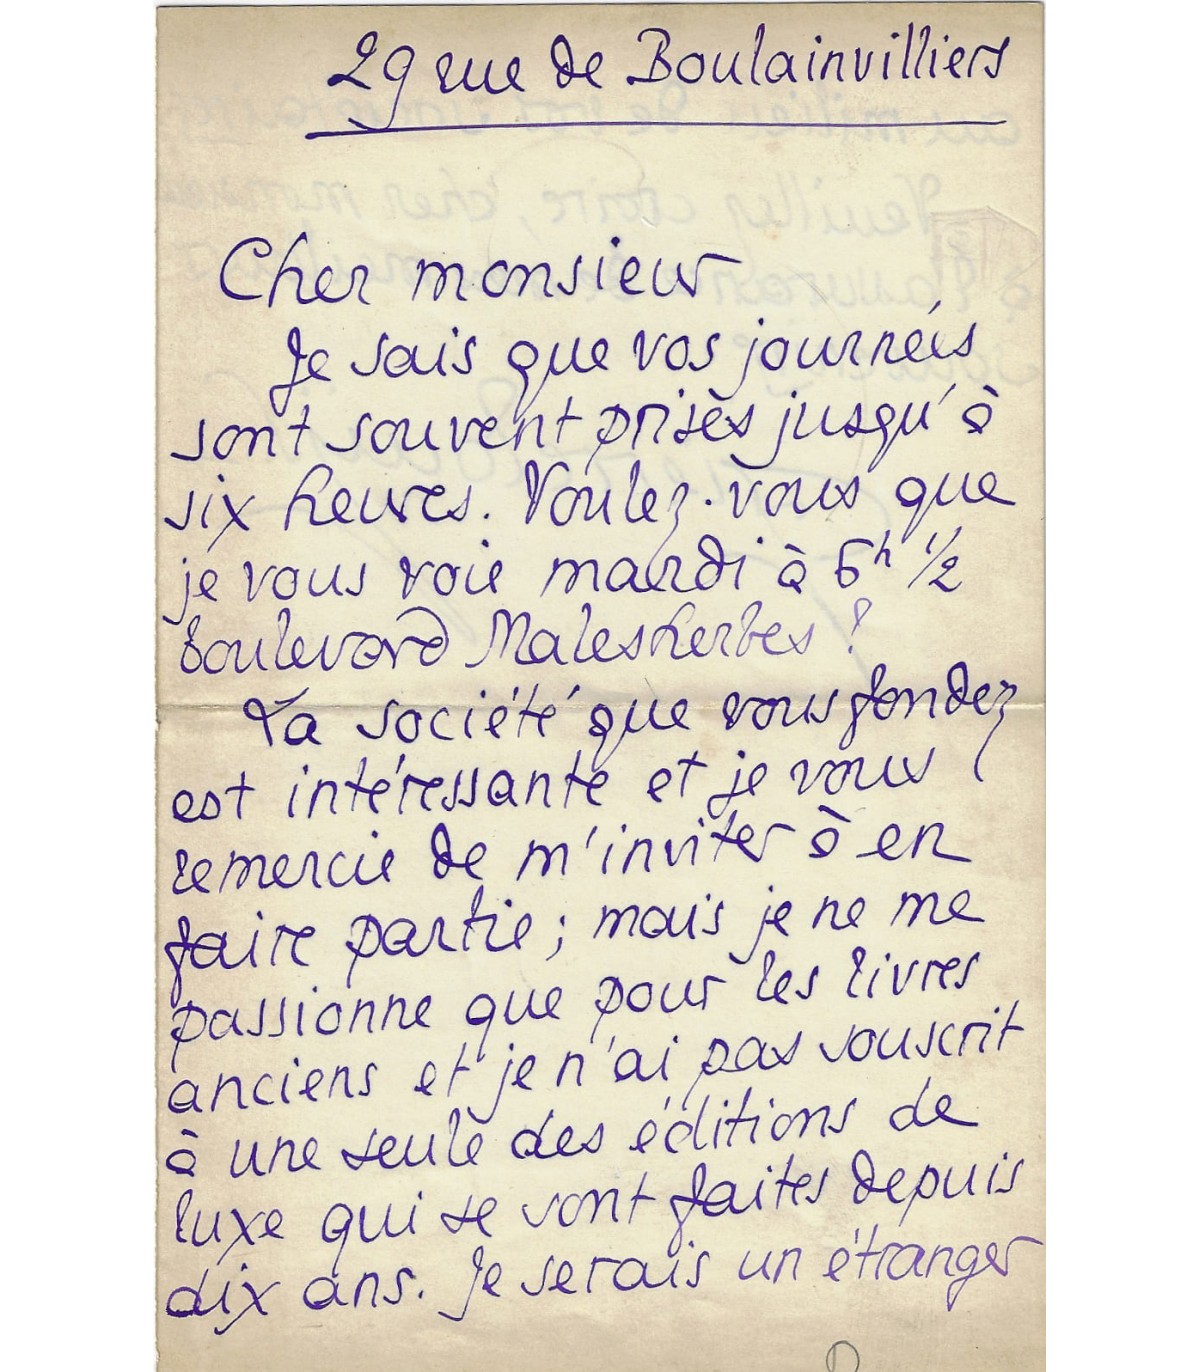 29 rue de Boulainvilliers
Cher monsieur
Je sais que vos journées
sont souvent prises jusqu'à
six heures. Voulez-vous que
je vous voie mardi à 6h 1/2
boulevard Malesherbes ?
La société que vous fondez
est intéressante et je vous
remercie de m'inviter à en
faire partie ; mais je ne me
passionne que pour les livres
anciens et je n'ai pas souscrit
à une seule des éditions de
luxe qui se sont faites depuis
dix ans. Je serais un étranger